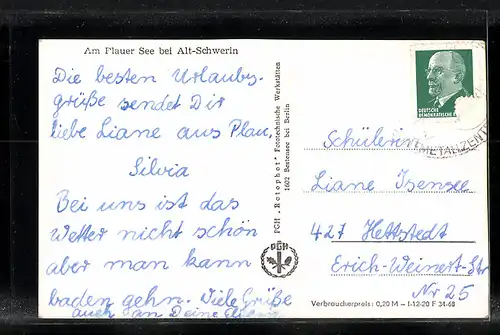 Am Plauer See bei Alt-Schwerin
Die besten Urlaubs-
grüße sendet Dir
liebe Liane aus Plau,
Silvia
Bei uns ist das
Wetter nicht schön
aber man kann
baden gehn. Viele Grüße
auch an Deine
PGH „Rotophot" Fototechnische Werkstätten
1602 Bestensee bei Berlin
PGH
DEUTSCHE
DEMOKRATISCHE
METALLZENT
Schülerin
Liane Isensee
427 Hettstedt
Erich-Weinert-Str
Nr 25
Verbraucherpreis: 0,20 M – I-12-20 F 31-68